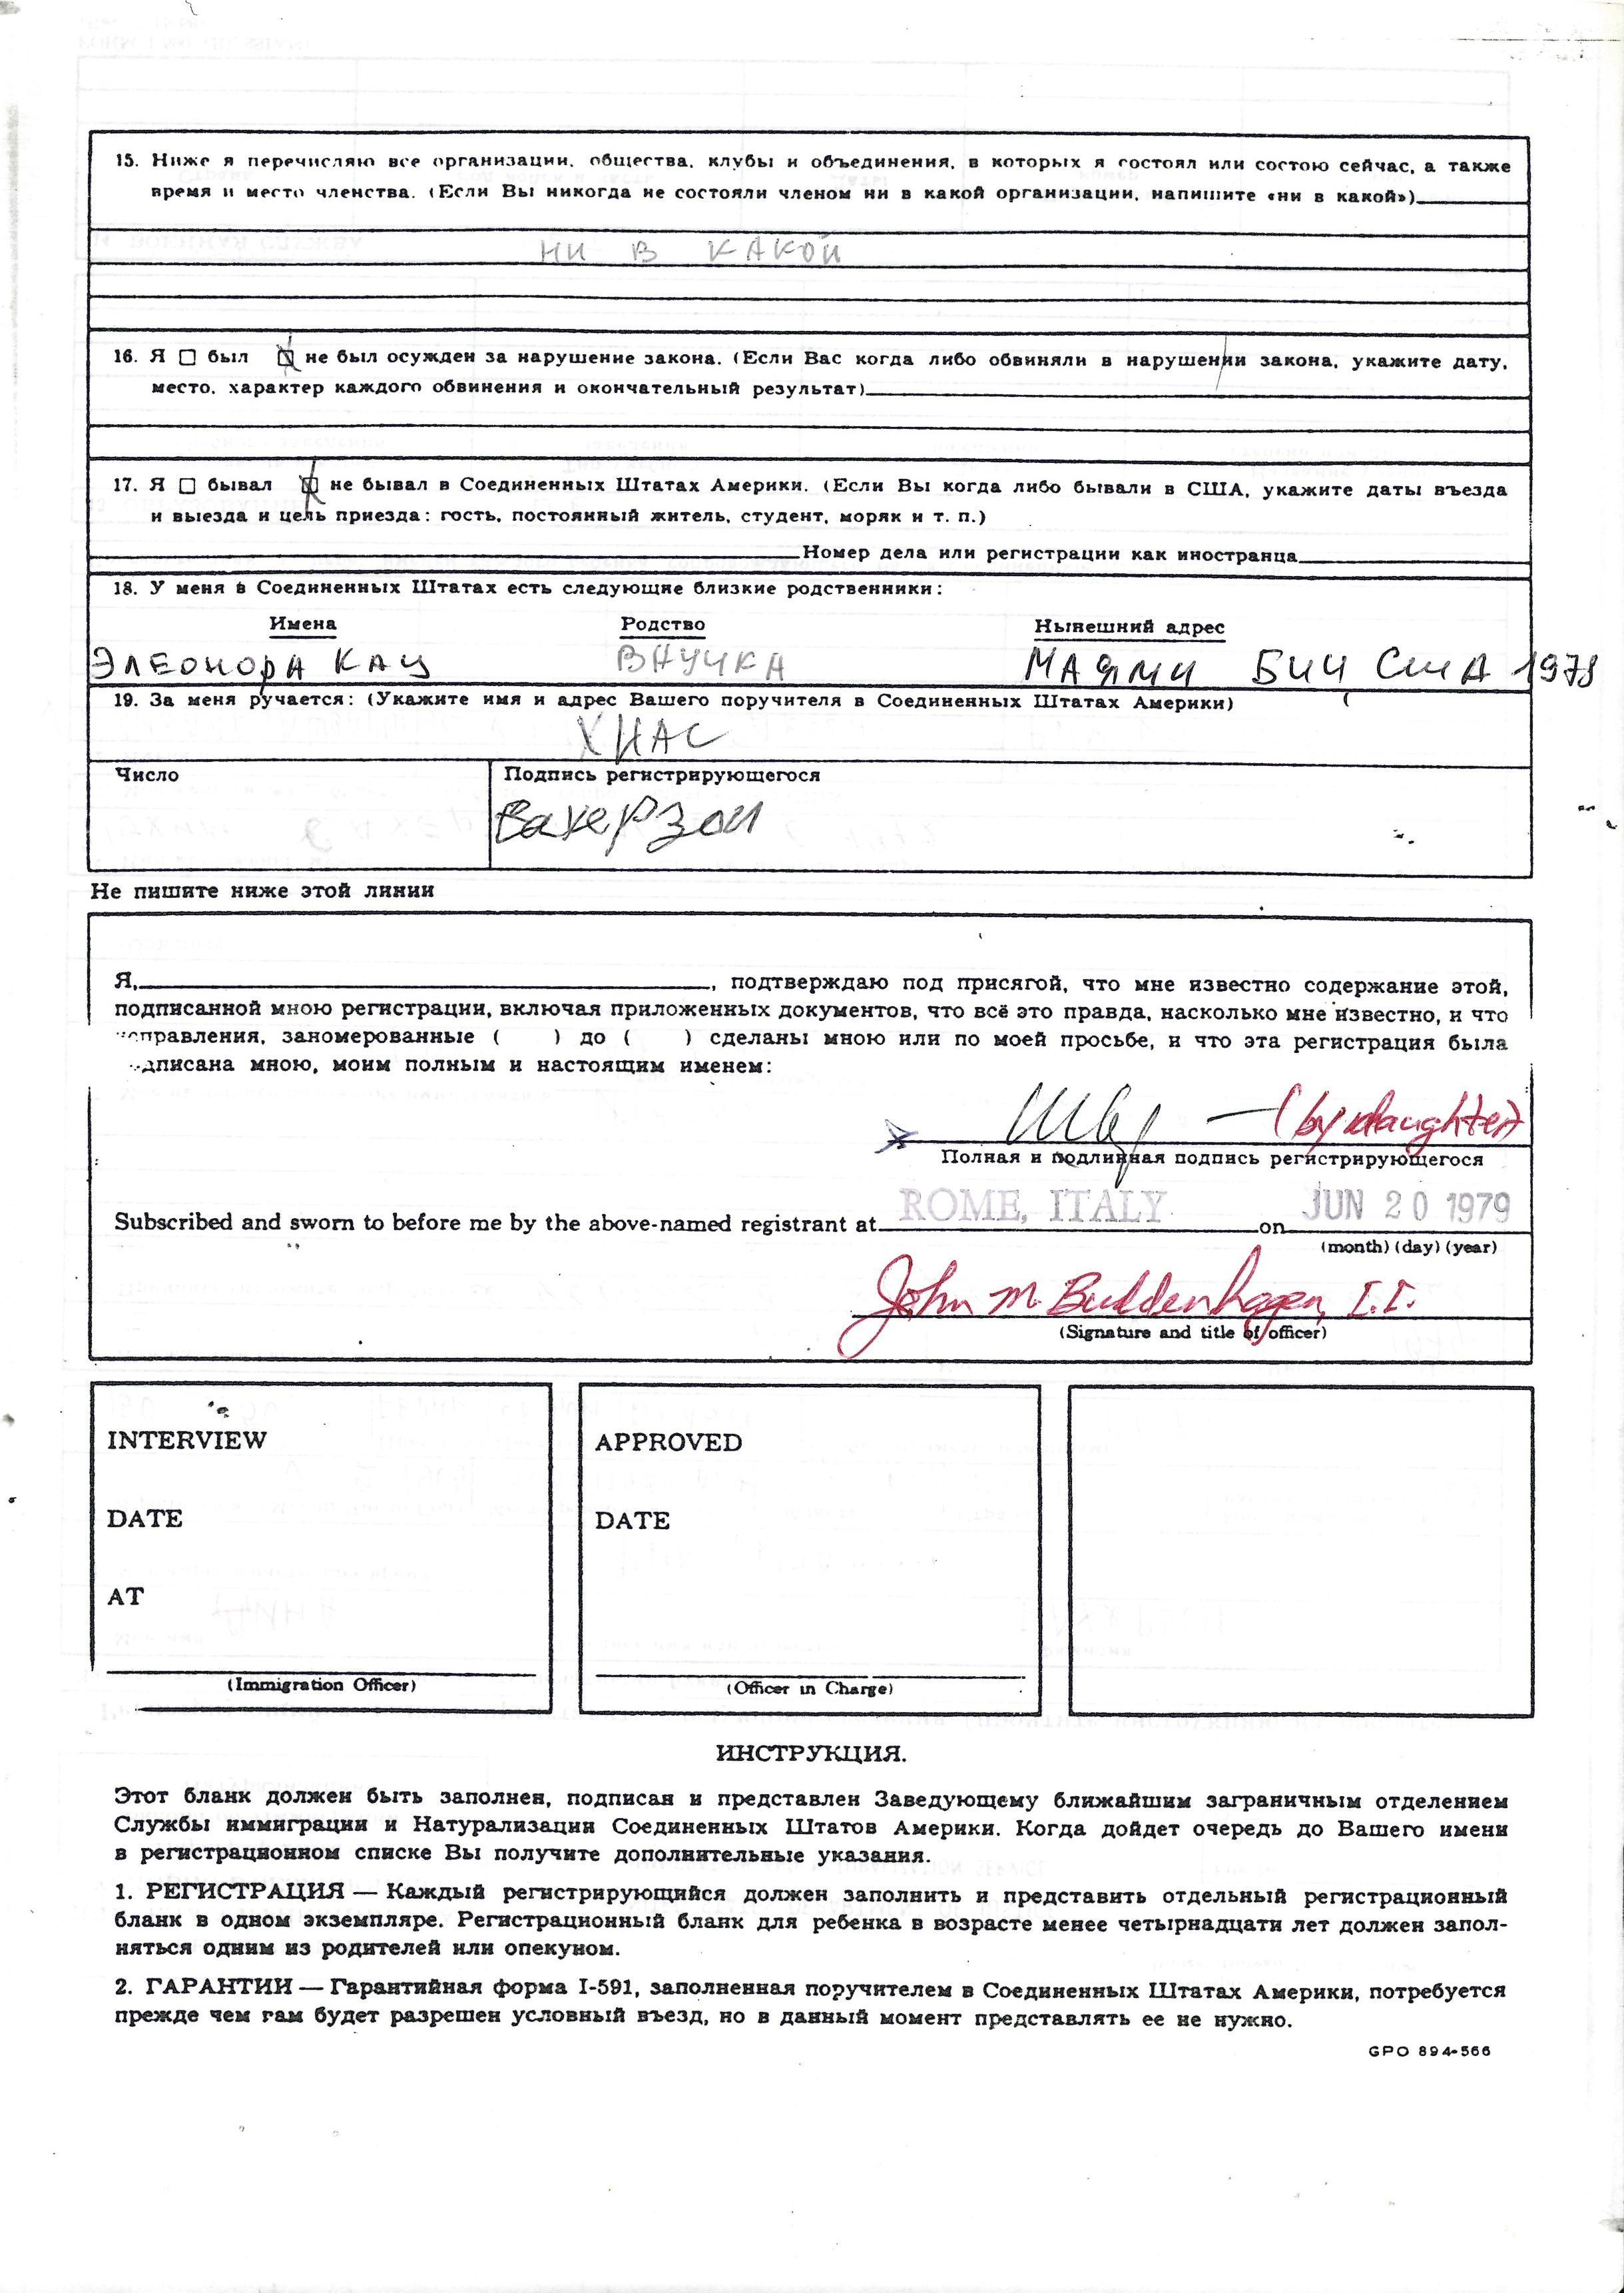 15. Ниже я перечисляю все организации, общества, клубы и объединения, в которых я состоял или состою сейчас, а также
время и место членства. (Если Вы никогда не состояли членом ни в какой организации, напишите «ни в какой»)
НИ В КАКОЙ
16. Я ☐ был ☒ не был осужден за нарушение закона. (Если Вас когда либо обвиняли в нарушении закона, укажите дату,
место, характер каждого обвинения и окончательный результат)
17. Я ☐ бывал ☒ не бывал в Соединенных Штатах Америки. (Если Вы когда либо бывали в США, укажите даты въезда
и выезда и цель приезда: гость, постоянный житель, студент, моряк и т. п.)
Номер дела или регистрации как иностранца
18. У меня в Соединенных Штатах есть следующие близкие родственники:
Имена Родство Нынешний адрес
ЭЛЕОНОРА КАЦ ВНУЧКА МАЯМИ БИЧ США 1978
19. За меня ручается: (Укажите имя и адрес Вашего поручителя в Соединенных Штатах Америки)
ХИАС
Число Подпись регистрирующегося
Вахерзон
Не пишите ниже этой линии
Я, , подтверждаю под присягой, что мне известно содержание этой,
подписанной мною регистрации, включая приложенных документов, что всё это правда, насколько мне известно, и что
исправления, заномерованные ( ) до ( ) сделаны мною или по моей просьбе, и что эта регистрация была
дписана мною, моим полным и настоящим именем:
x (by daughter)
Полная и подлинная подпись регистрирующегося
Subscribed and sworn to before me by the above-named registrant at ROME, ITALY on JUN 20 1979
(month) (day) (year)
John M. Buddenhagen, I.I.
(Signature and title of officer)
INTERVIEW
DATE
AT
(Immigration Officer)
APPROVED
DATE
(Officer in Charge)
ИНСТРУКЦИЯ.
Этот бланк должен быть заполнен, подписан и представлен Заведующему ближайшим заграничным отделением
Службы иммиграции и Натурализации Соединенных Штатов Америки. Когда дойдет очередь до Вашего имени
в регистрационном списке Вы получите дополнительные указания.
1. РЕГИСТРАЦИЯ — Каждый регистрирующийся должен заполнить и представить отдельный регистрационный
бланк в одном экземпляре. Регистрационный бланк для ребенка в возрасте менее четырнадцати лет должен запол-
няться одним из родителей или опекуном.
2. ГАРАНТИИ — Гарантийная форма I-591, заполненная поручителем в Соединенных Штатах Америки, потребуется
прежде чем вам будет разрешен условный въезд, но в данный момент представлять ее не нужно.
GPO 894-566